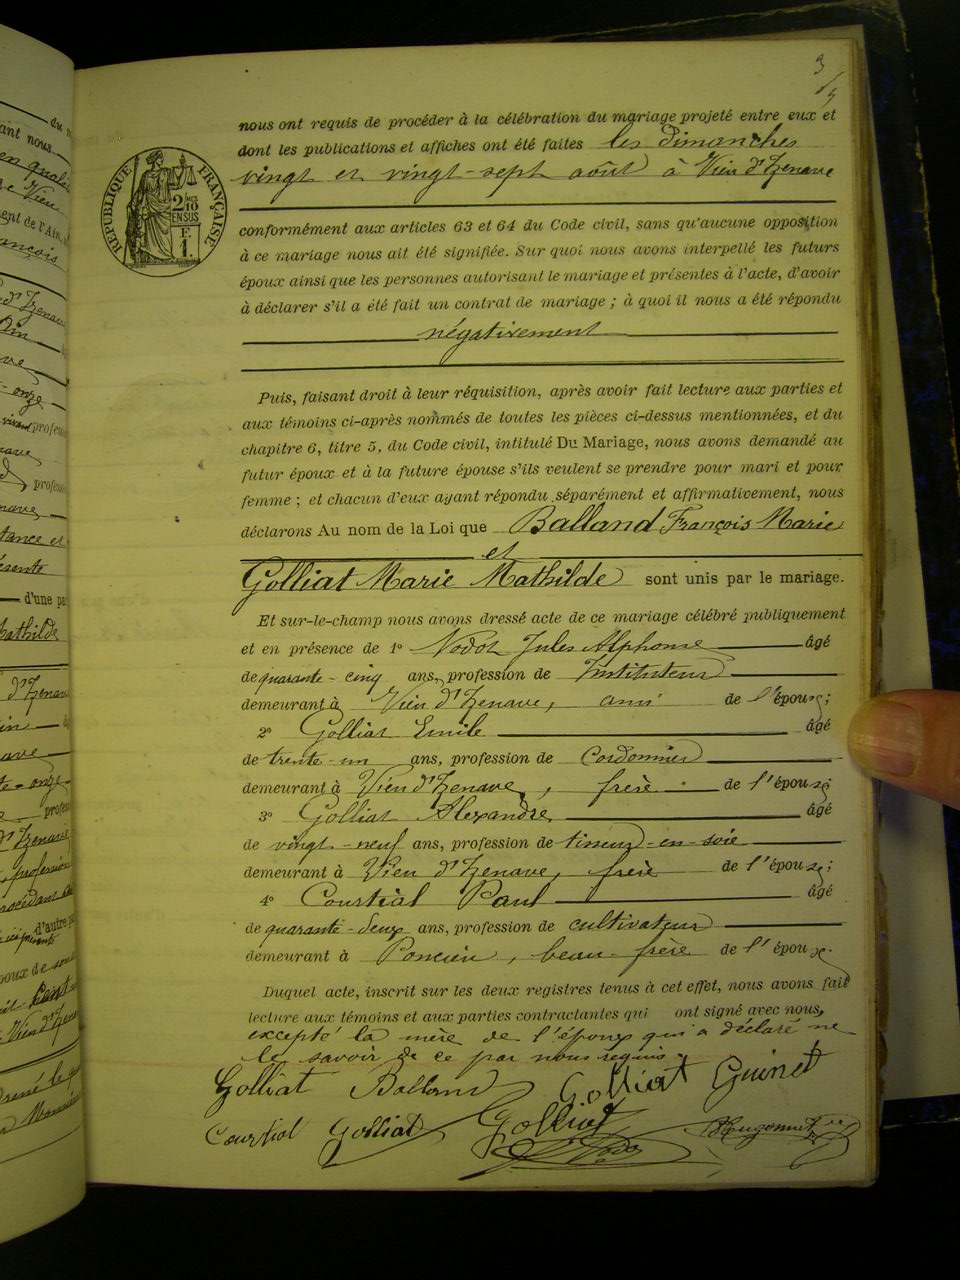 3
nous ont requis de procéder à la célébration du mariage projeté entre eux et
dont les publications et affiches ont été faites les dimanches
vingt et vingt-sept août à Vieu d'Izenave
RÉPUBLIQUE FRANÇAISE
2/10 EN SUS
F. 1
conformément aux articles 63 et 64 du Code civil, sans qu'aucune opposition
à ce mariage nous ait été signifiée. Sur quoi nous avons interpellé les futurs
époux ainsi que les personnes autorisant le mariage et présentes à l'acte, d'avoir
à déclarer s'il a été fait un contrat de mariage ; à quoi il nous a été répondu
négativement
Puis, faisant droit à leur réquisition, après avoir fait lecture aux parties et
aux témoins ci-après nommés de toutes les pièces ci-dessus mentionnées, et du
chapitre 6, titre 5, du Code civil, intitulé Du Mariage, nous avons demandé au
futur époux et à la future épouse s'ils veulent se prendre pour mari et pour
femme ; et chacun d'eux ayant répondu séparément et affirmativement, nous
déclarons Au nom de la Loi que Balland François Marie
et
Golliat Marie Mathilde sont unis par le mariage.
Et sur-le-champ nous avons dressé acte de ce mariage célébré publiquement
et en présence de 1° Nodot Jules Alphonse âgé
de quarante-cinq ans, profession de Instituteur
demeurant à Vieu d'Izenave, ami de l'épouse;
2° Golliat Emile âgé
de trente-un ans, profession de Cordonnier
demeurant à Vieu d'Izenave, frère de l'épouse
3° Golliat Alexandre âgé
de vingt-neuf ans, profession de tisseur-en-soie
demeurant à Vieu d'Izenave, frère de l'épouse;
4° Courtial Paul âgé
de quarante-deux ans, profession de cultivateur
demeurant à Poncieu, beau-frère de l'époux.
Duquel acte, inscrit sur les deux registres tenus à cet effet, nous avons fait
lecture aux témoins et aux parties contractantes qui ont signé avec nous,
excepté la mère de l'époux qui a déclaré ne
le savoir de ce par nous requis.
Golliat Balland Golliat Guinet
Courtial Golliat Golliat Hugonnet
Nodot